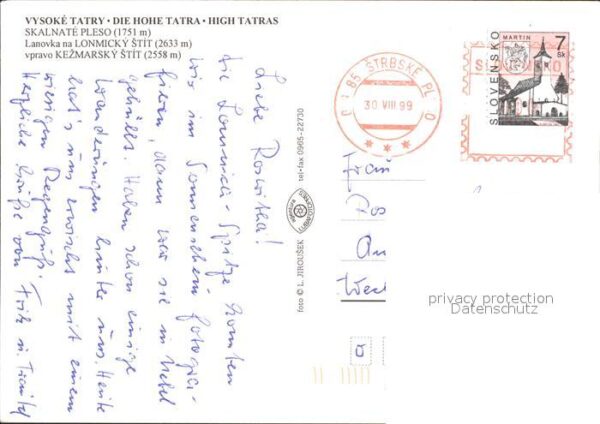 VYSOKÉ TATRY • DIE HOHE TATRA • HIGH TATRAS
SKALNATÉ PLESO (1751 m)
Lanovka na LOMNICKÝ ŠTÍT (2633 m)
vpravo KEŽMARSKÝ ŠTÍT (2558 m)
Liebe Roswitha!
Die Lomnici-Spitze konnten
wir im Sonnenschein fotogra-
fieren, dann war sie in Nebel
gehüllt. Haben schon einige
Wanderungen hinter uns. Heute
hat's uns erwischt mit einem
riesigen Regenguß.
Herzliche Grüße von Fritz u. Traudel
foto © L. JIROUŠEK tel-fax 0905-22730
085 ŠTRBSKÉ PLESO
30 VIII 99
MARTIN
7 Sk
SLOVENSKO
privacy protection
Datenschutz